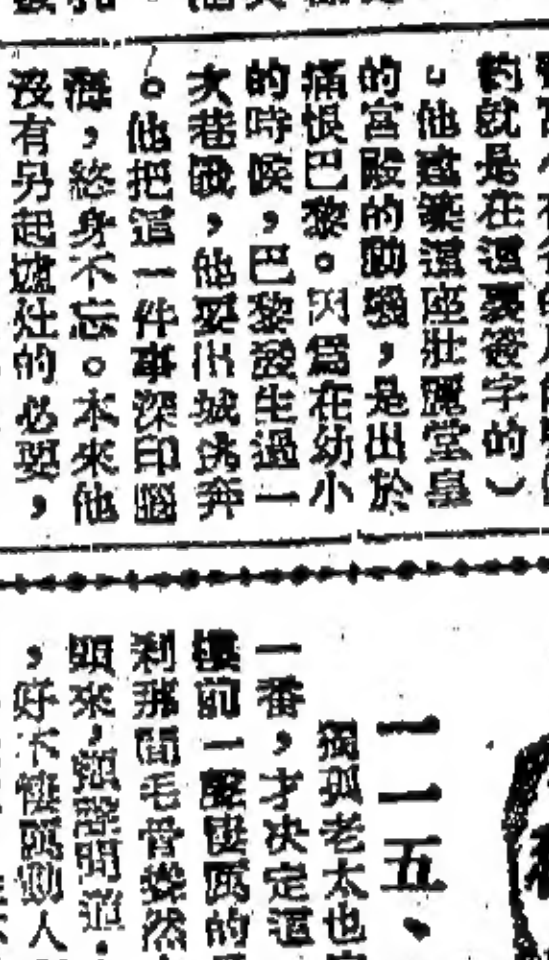 約就是在這裏簽字的）
。他建築這座壯麗堂皇
的宮殿的動機，是出於
痛恨巴黎。因爲在幼小
的時候，巴黎發生過一
次巷戰，他要出城逃奔
。他把這一件事深印腦
海，終身不忘。本來他
沒有另起爐灶的必要，
一一五、
獨孤老太也
一番，才決定這
樓前一聲淒厲的
刹那間毛骨悚然
頭來，顫聲問道
，好不悽厲動人